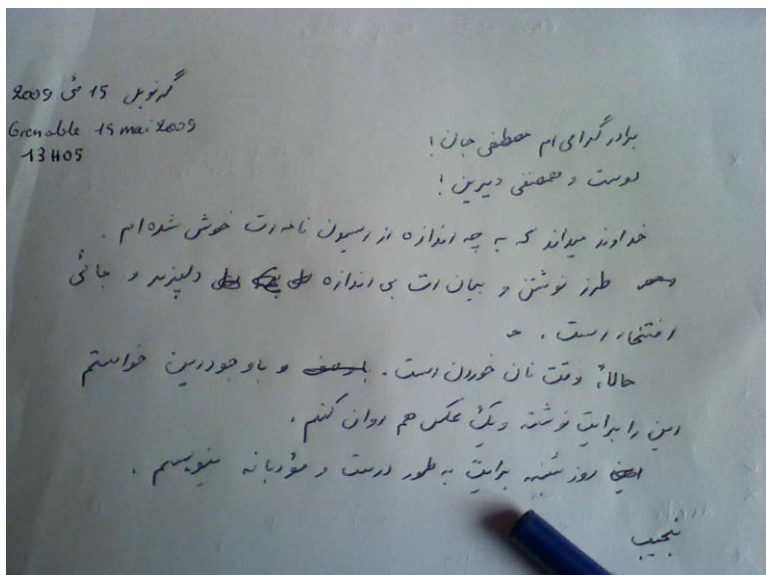 گرنوبل 15 مئ 2009
Grenoble 15 mai 2009
13H05
برادر گرامی ام مصطفی جان!
دوست و همصنفی دیرین!
خداوند میداند که به چه اندازه از رسیدن نامه ات خوش شده ام.
طرز نوشتن و بیان ات بی اندازه دلپزیر و جائی
افتخار است.
حالأ، وقت نان خوردن است. و باوجوداین خواستم
این را برایت نوشته و یک عکس هم روان کنم.
روز شنبه برایت به طور درست و مؤدبانه مینویسم.
نجیب